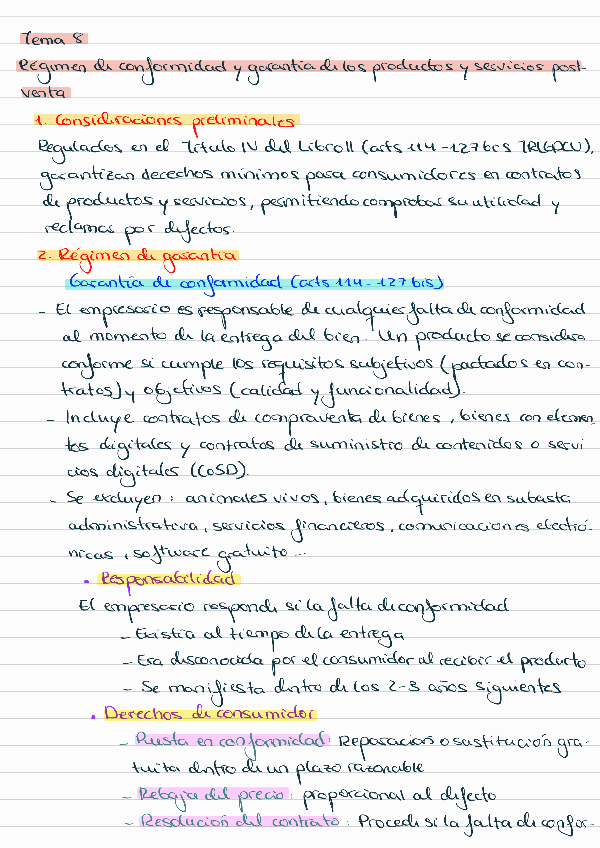 Tema 8
Régimen de conformidad y garantía de los productos y servicios post-
venta
1. Consideraciones preliminares
Regulados en el Título IV del Libro II (arts 114-127 bis TRLGDCU),
garantizan derechos mínimos para consumidores en contratos
de productos y servicios, permitiendo comprobar su utilidad y
reclamar por defectos.
2. Régimen de garantía
Garantía de conformidad (arts 114-127 bis)
- El empresario es responsable de cualquier falta de conformidad
al momento de la entrega del bien. Un producto se considera
conforme si cumple los requisitos subjetivos (pactados en con-
tratos) y objetivos (calidad y funcionalidad).
- Incluye contratos de compraventa de bienes, bienes con elemen
tos digitales y contratos de suministro de contenidos o servi
cios digitales (CoSD).
- Se excluyen: animales vivos, bienes adquiridos en subasta
administrativa, servicios financieros, comunicaciones electró-
nicas, software gratuito...
• Responsabilidad
El empresario responde si la falta de conformidad
- Existía al tiempo de la entrega
- Era desconocida por el consumidor al recibir el producto
- Se manifiesta dentro de los 2-3 años siguientes
• Derechos de consumidor
- Puesta en conformidad: Reparación o sustitución gra-
tuita dentro de un plazo razonable
- Rebaja del precio: proporcional al defecto
- Resolución del contrato: Procede si la falta de confor-